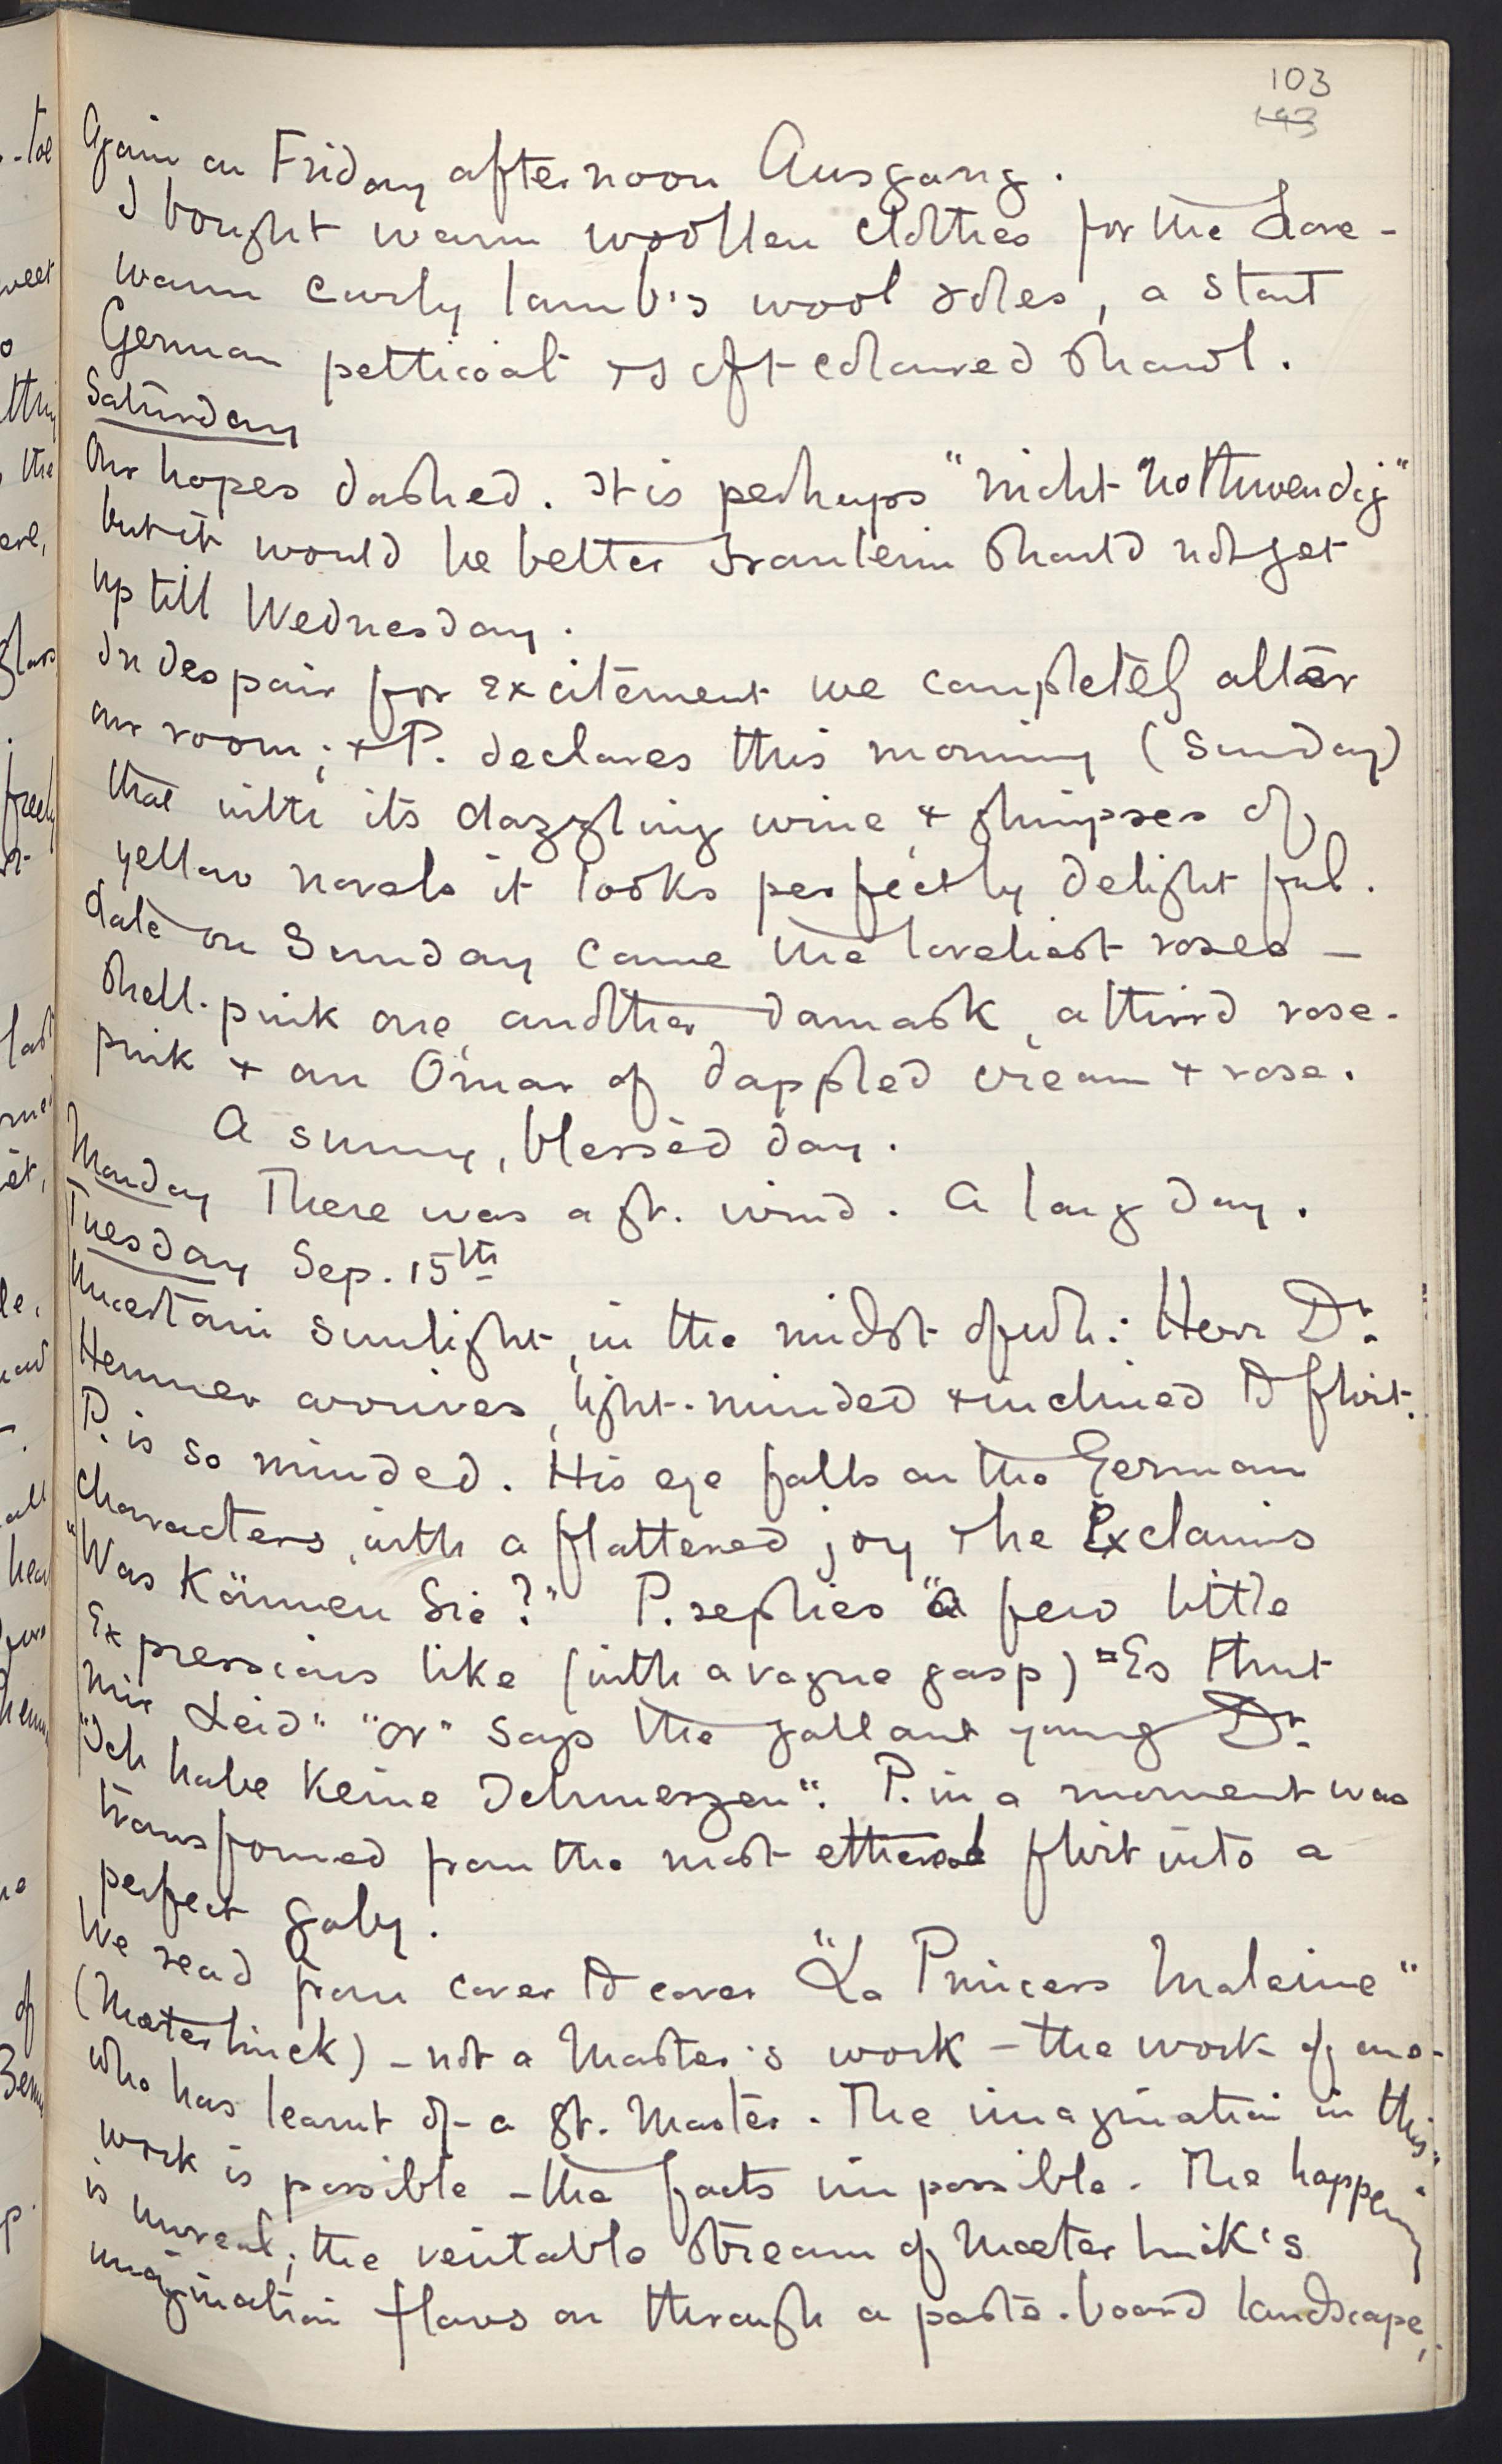 103
143
Again on Friday afternoon Ausgang.
I bought warm woollen clothes for the Love -
warm curly lamb's wool soles, a stout
German petticoat + soft-coloured shawl.
Saturday
Our hopes dashed. It is perhaps "nicht nothwendig"
but it would be better should not get
up till Wednesday.
In despair for excitement we completely alter
our room; + P. declares this morning (Sunday)
that with its dazzling wine + glimpses of
yellow novels it looks perfectly delightful.
Late on Sunday came the loveliest roses -
shell-pink one, another damask, a third rose-
pink + an Omar of dappled cream + rose.
A sunny, blessèd day.
Monday There was a gt. wind. A long day.
Tuesday Sep. 15th
Uncertain sunlight, in the midst of wh: Herr Dr.
arrives, light-minded + inclined to flirt.
P. is so minded. His eye falls on the German
characters, with a flattered joy + he Exclaims
"Was Können Sie?" P. replies "a few little
Expressions like (with a vague gasp) "Es thut
mir Leid" "or" says the gallant young Dr.
"Ich habe Keine Schmerzen". P. in a moment was
transformed from the most ethereal flirt into a
perfect gaby.
We read from cover to cover "La Princess Maleine"
(Maeterlinck) - not a Master's work - the work of one
who has learnt of a gt. Master. The imagination in this
work is possible - the facts impossible. The happening
is unreal; the veritable stream of Maeterlinck's
imagination flows on through a paste-board landscape,